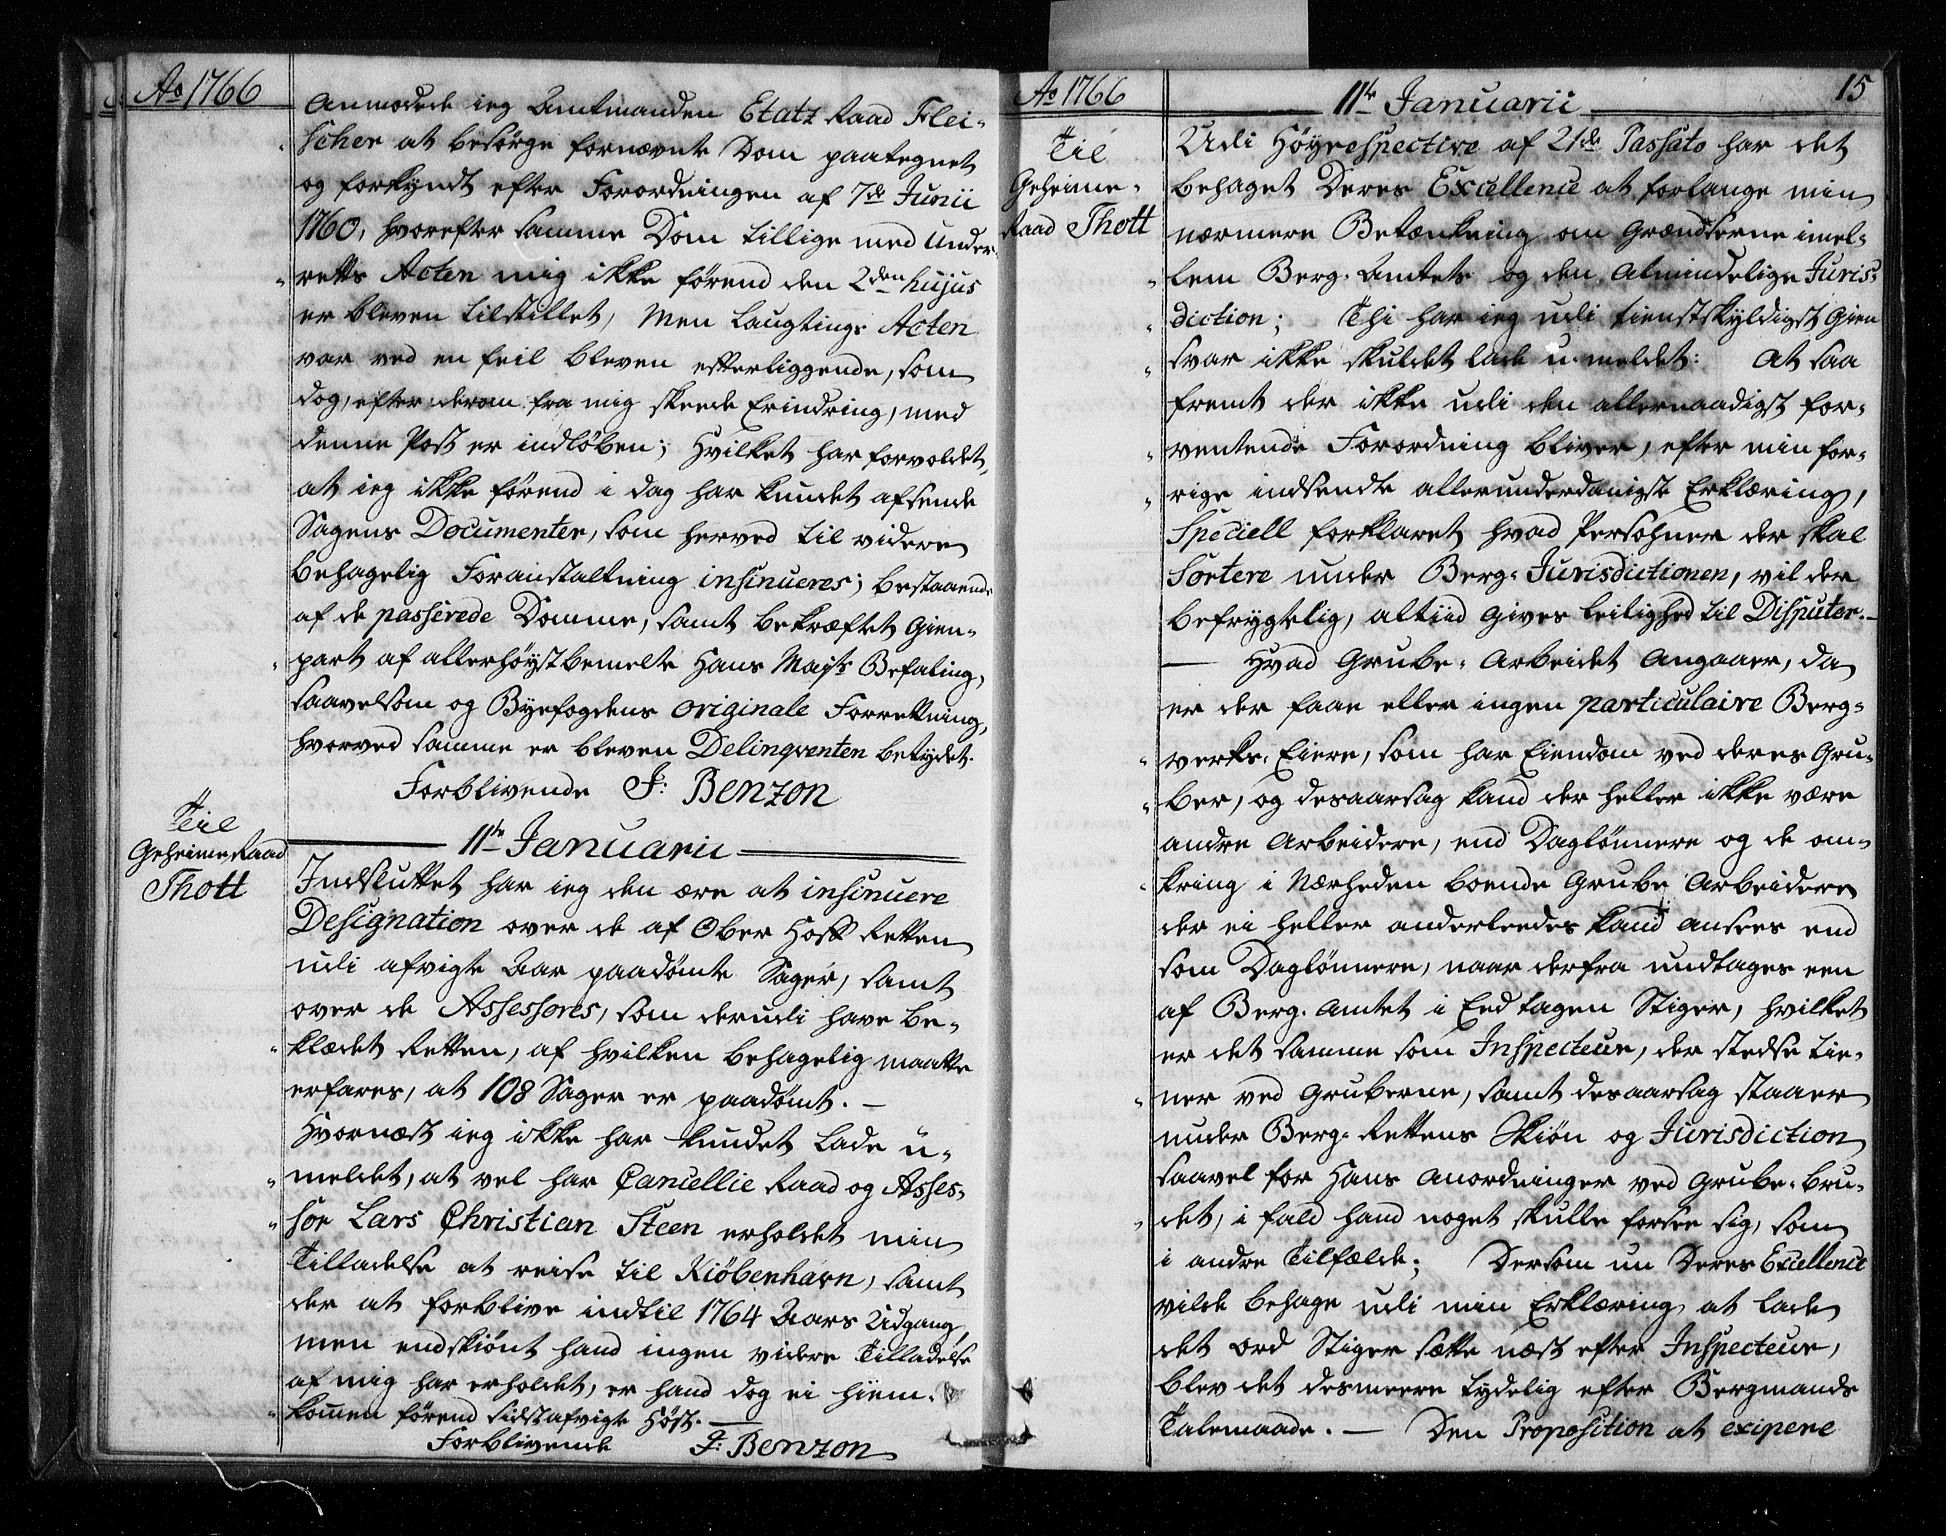 Ao 1766
Anmodede ieg Amtmanden Etatz Raad Flei-
scher at besørge fornævnte Dom paategnet
og forkyndt efter Forordningen af 7de Junii
1760, hvorefter samme Dom tillige med Under-
retts Acten mig ikke førend den 2den hujus
er bleven tilstillet, Men Laugtings Acten
var ved en feil bleven efterliggende, som
dog, efter derom fra mig skeede Erindring, med
denne Post er indløben; Hvilket har forvoldet,
at ieg ikke førend i dag har kundet afsende
Sagens Documenter, som herved til videre
behagelig Foranstaltning insinueres; bestaaende
af de passerede Domme, samt bekræftet Gien-
part af allerhøystbemelte Hans Mayts Befaling,
saavelsom og Byefogdens originale Forretning,
hvorved samme er bleven Delinqventen betydet.
Forblivende J: Benzon
Til
Geheime Raad
Thott
11te Januarii
Indsluttet har ieg den ære at insinuere
Designation over de af Ober Hoff Retten
udi afvigte Aar paadømte Sager, samt
over de Assessores, som derudi have be-
klædet Retten, af hvilken behagelig maatte
erfares, at 108 Sager er paadømt. —
Hvornæst ieg ikke har kundet lade u-
meldet, at vel har Cancellie Raad og Asses-
sor Lars Christian Steen erholdet min
Tilladelse at reise til Kiøbenhavn, samt
der at forblive indtil 1764 Aars Udgang,
men endskiønt hand ingen videre Tilladelse
af mig har erholdet, er hand dog ei hiem-
kommen førend sidstafvigte Høst. —
Forblivende J: Benzon
Ao 1766
11te Januarii
15
Til
Geheime-
Raad Thott
Udi Høyrespective af 21de Passato har det
behaget Deres Excellence at forlange min
nærmere Betænkning om Grændserne imel-
lem Berg-Amtets og den Almindelige Juris-
diction; Thi har ieg udi tienstskyldigst Gien
svar ikke skuldet lade u-meldet: At saa
fremt der ikke udi den allernaadigst for-
ventende Forordning bliver, efter min for-
rige indsendte allerunderdanigste Erklæring,
Speciell forklaret hvad Persohner der skal
Sortere under Berg-Jurisdictionen, vil der
befrygtelig, altiid gives leilighed til Disputer. —
— Hvad Grube-Arbeidet Angaaer, da
er der faae eller ingen particulaire Berg-
verks-Eiere, som har Eiendom ved deres Gru-
ber, og desaarsag kand der heller ikke være
andre Arbeidere, end Daglønnere og de om-
kring i Nærheden boende Grube Arbeidere
der ei heller anderleedes kand ansees end
som Daglønnere, naar derfra undtages een
af Berg-Amtet i Eed tagen Stiger, hvilket
er det samme som Inspecteur, der stedse tie-
ner ved Gruberne, samt desaarsag staaer
under Berg-Rettens Skiøn og Jurisdiction
saavel for Hans Anordninger ved Grube-bru-
det, i fald hand noget skulle forsee sig, som
i andre Tilfælde; Dersom nu Deres Excellence
vilde behage udi min Erklæring at lade
det Ord Stiger sætte næst efter Inspecteur,
blev det desmeere tydelig efter Bergmands
Talemaade. — Den Proposition at exipere